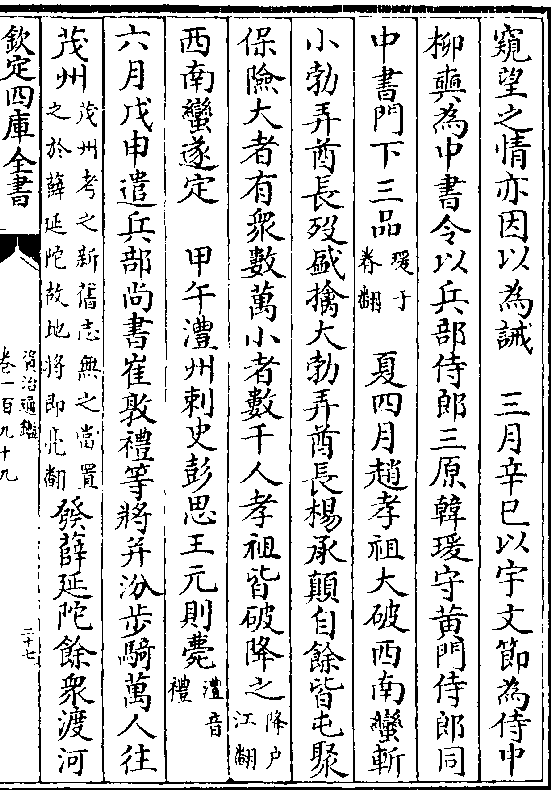 窺望之情亦因以為誡　三月辛巳以宇文節為侍中
柳奭為中書令以兵部侍郎三原韓瑗守黄門侍郎同
中書門下三品瑗于眷翻　夏四月趙孝祖大破西南蠻斬
小勃弄酋長殁盛擒大勃弄酋長楊承顛自餘皆屯聚
保險大者有衆數萬小者數千人孝祖皆破降之降户江翻
西南蠻遂定　甲午澧州刺史彭思王元則薨澧音禮
六月戊申遣兵部尚書崔敦禮等將并汾步騎萬人往
茂州茂州考之新舊志無之當置之於薛延陀故地將即亮翻發薛延陀餘衆渡河
欽定四庫全書
資治通鑑
卷一百九十九
二十七